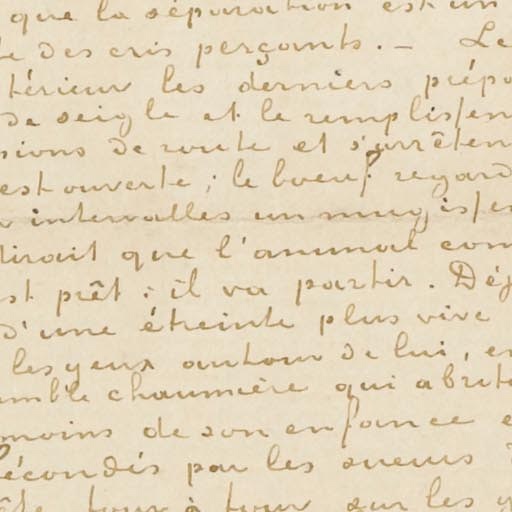 que la séparation est un
te des cris perçants. — Le
térieur les derniers prépa
de seigle et le remplissen
sions de route et s'arrêten
est ouverte ; le boeuf regard
intervalles un mugissem
dirait que l'animal com
st prêt ; il va partir. Déj
d'une étreinte plus vive
les yeux autour de lui, en
umble chaumière qui abrita
moins de son enfance e
fécondés par les sueurs
tour à tour sur les y